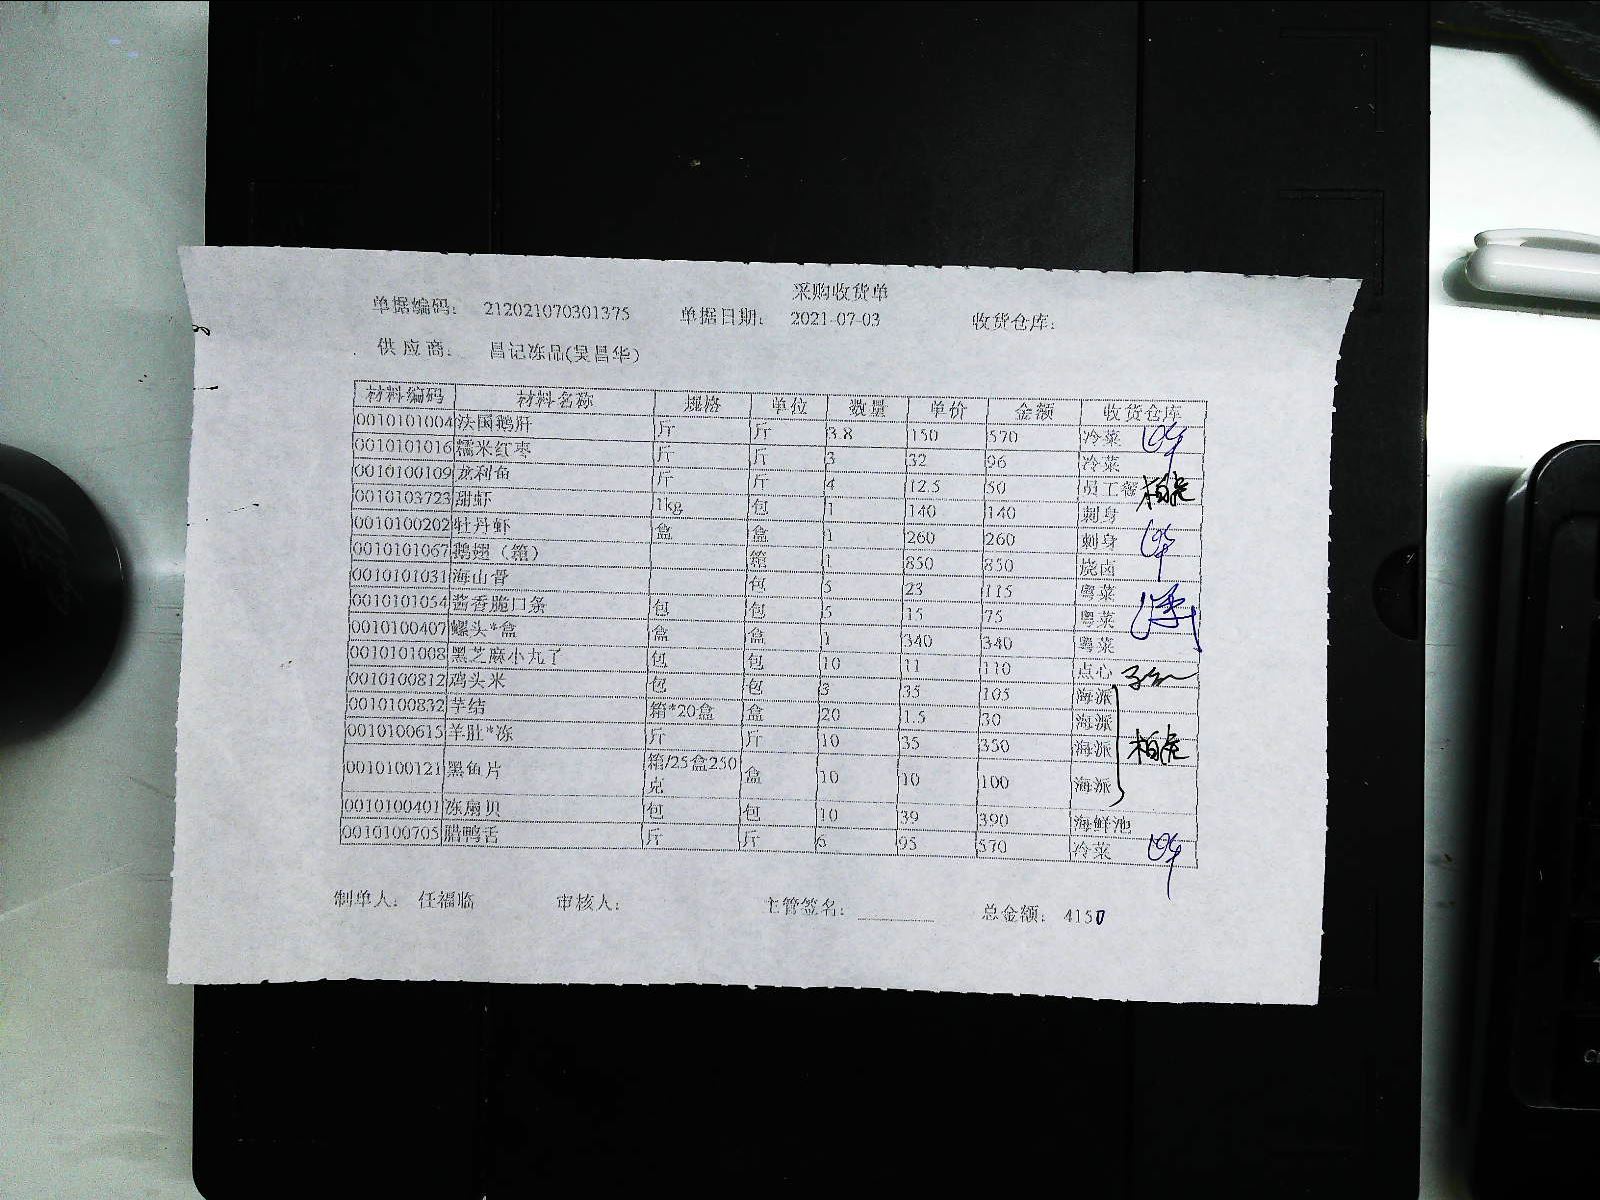 采购收货单
单据编码： 212021070301375 单据日期： 2021-07-03 收货仓库：
供应商： 昌记冻品(吴昌华)
材料编码 材料名称 规格 单位 数量 单价 金额 收货仓库
0010101004 法国鹅肝 斤 斤 3.8 150 570 冷菜
0010101016 糯米红枣 斤 斤 3 32 96 冷菜
0010100109 龙利鱼 斤 斤 4 12.5 50 员工餐
0010103723 甜虾 1kg 包 1 140 140 刺身
0010100202 牡丹虾 盒 盒 1 260 260 刺身
0010101067 鹅翅（箱） 箱 1 850 850 烧卤
0010101031 海山骨 包 5 23 115 粤菜
0010101054 酱香脆口条 包 包 5 15 75 粤菜
0010100407 螺头*盒 盒 盒 1 340 340 粤菜
0010101008 黑芝麻小丸子 包 包 10 11 110 点心
0010100812 鸡头米 包 包 3 35 105 海派
0010100832 芋结 箱*20盒 盒 20 1.5 30 海派
0010100615 羊肚*冻 斤 斤 10 35 350 海派
0010100121 黑鱼片 箱/25盒250克 盒 10 10 100 海派
0010100401 冻扇贝 包 包 10 39 390 海鲜池
0010100705 腊鸭舌 斤 斤 6 95 570 冷菜
制单人： 任福临 审核人： 主管签名： 总金额： 4151